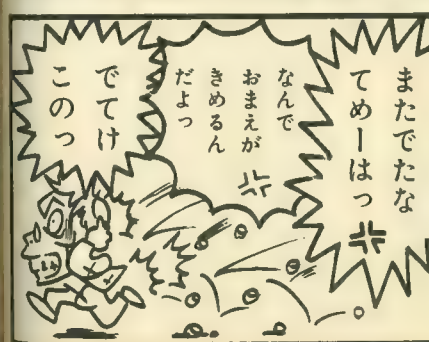 またでたな
てめーはっ
なんで
おまえが
きめるん
だよっ
でてけ
このっ